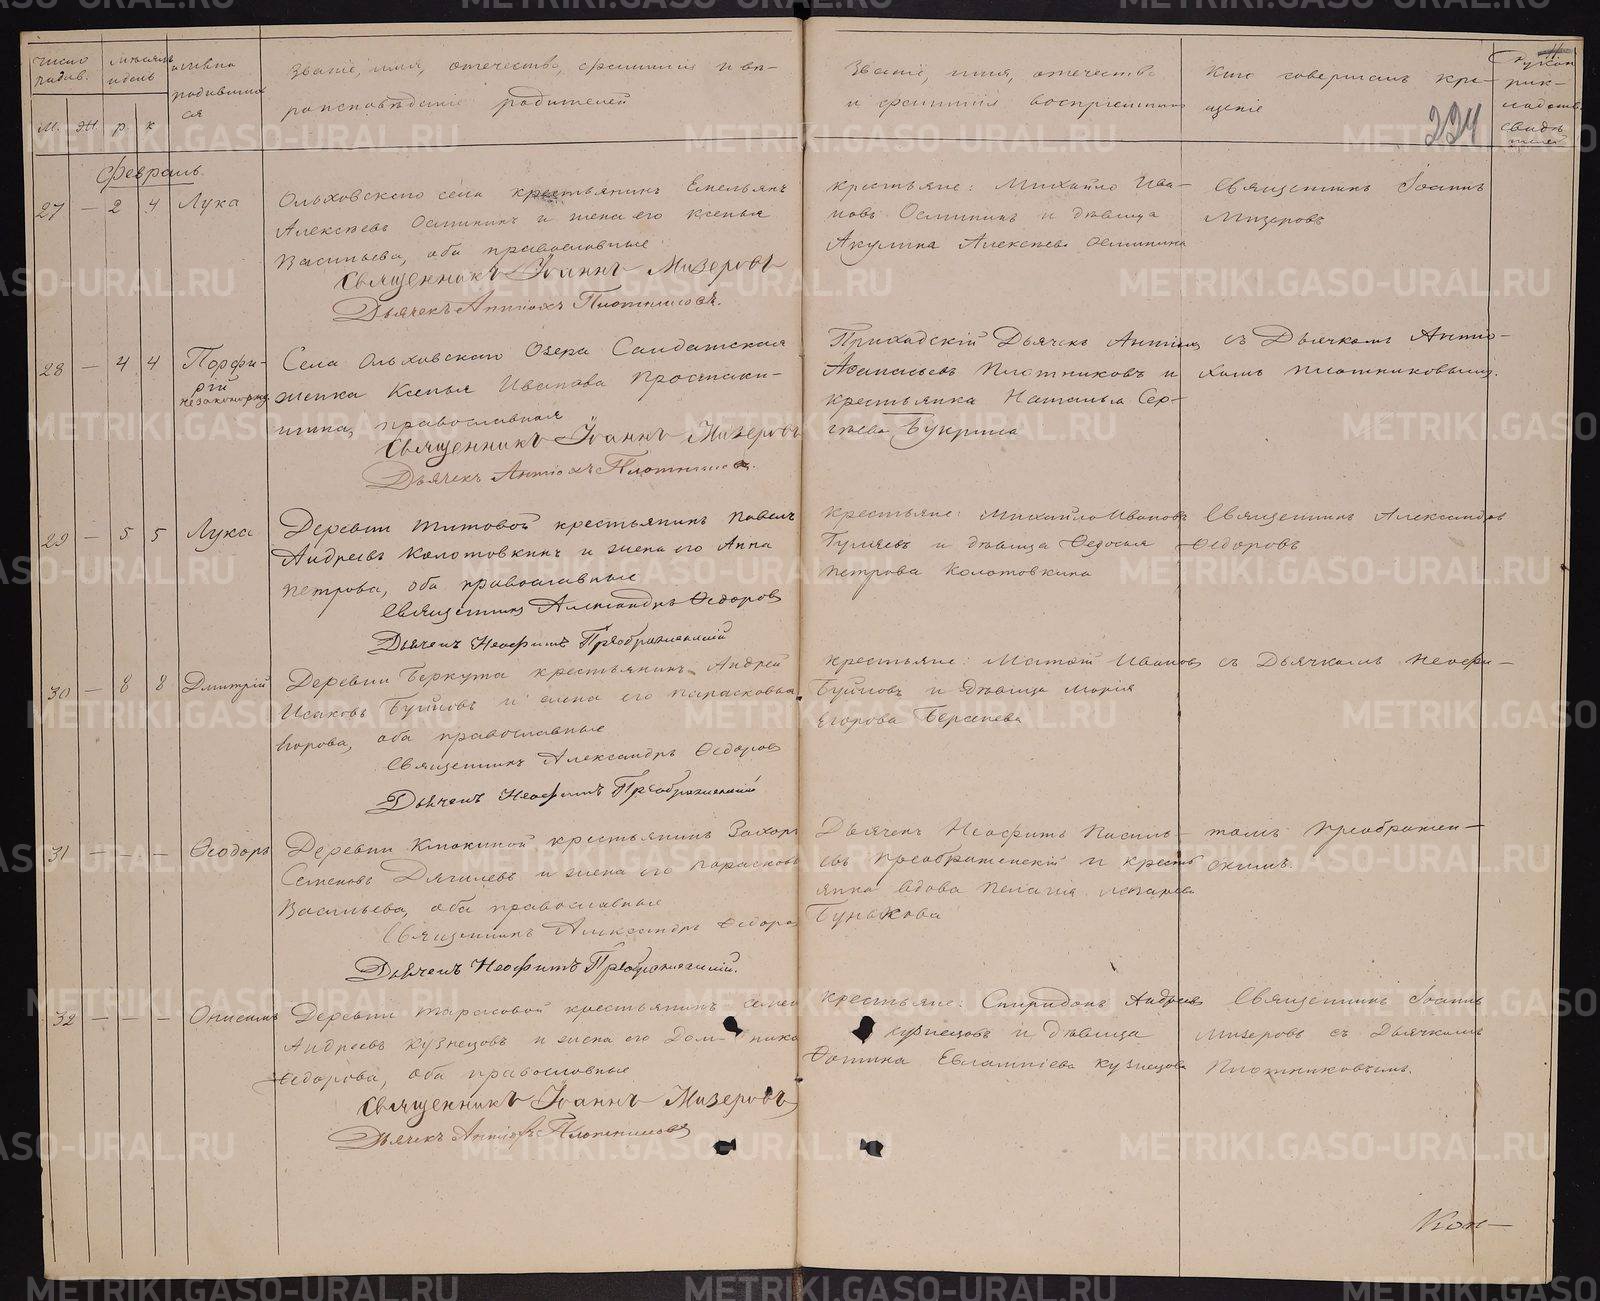 Число родив.
Месяцъ и день
имена родившихся
Званіе, имя, отчество, фамилія и вѣроисповѣданіе родителей
Званіе, имя, отчество и фамилія воспріемниковъ
Кто совершалъ крещеніе
М. Ж. р к
224
Февраль.
27 — 2 4 Лука
Ольховскаго села крестьянинъ Емельянъ
Алексѣевъ Осминин и жена его Ксенья
Васильева, оба православные
Священникъ Іоаннъ Мизеровъ
Дьячекъ Антіохъ Плотниковъ.
крестьяне: Михайло Ива-
новъ Осминин и дѣвица
Акулина Алексѣева Осминина
Священникъ Іоаннъ
Мизеровъ
28 — 4 4 Порфи-
рій
незаконорж.
Села Ольховскаго Озера Салдатская
женка Ксенья Иванова
православная
Священникъ Іоаннъ Мизеровъ
Дьячекъ Антіохъ Плотниковъ.
Приходскій Дьячекъ Антіохъ
Афанасьевъ Плотниковъ и
крестьянка Наталья Сер-
гѣева Букрина
съ Дьячкомъ Антіо-
хомъ Плотниковымъ.
29 — 5 5 Лука
Деревни Титовой крестьянинъ Павелъ
Андреевъ Колотовкинъ и жена его Анна
Петрова, оба православные
Священникъ Александръ Ѳедоровъ
Дьячекъ Неофитъ Преображенскій
крестьяне: Михайло Ивановъ
Гуляевъ и дѣвица Ѳедосья
Петрова Колотовкина
Священникъ Александръ
Ѳедоровъ
30 — 8 8 Дмитрій
Деревни Беркута крестьянинъ Андрей
Исаковъ Буйновъ и жена его Парасковья
Егорова, оба православные
Священникъ Александръ Ѳедоровъ
Дьячекъ Неофитъ Преображенскій
крестьяне: Матѳій Ивановъ
Буйновъ и дѣвица Марія
Егорова Берсенева
съ Дьячкомъ Неофи-
31 — — — Ѳеодоръ
Деревни Клюкиной крестьянинъ Захаръ
Семеновъ Дягилевъ и жена его Парасковья
Васильева, оба православные
Священникъ Александръ Ѳедоровъ
Дьячекъ Неофитъ Преображенскій.
Дьячекъ Неофитъ Василь-
евъ Преображенскій и кресть
янка вдова Пелагія Лазарева
Бунькова
томъ Преображен-
скимъ.
32 — — — Онисимъ
Деревни Тарасовой крестьянинъ Семен
Андреевъ Кузнецовъ и жена его Дом- ника
Ѳедорова, оба православные
Священникъ Іоаннъ Мизеровъ
Дьячекъ Антіохъ Плотниковъ
крестьяне: Спиридонъ Андреевъ
Кузнецовъ и дѣвица
Фотина Евлампіева Кузнецова
Священникъ Іоаннъ
Мизеровъ съ Дьячкомъ
Плотниковымъ.
Кон-
METRIKI.GASO-URAL.RU